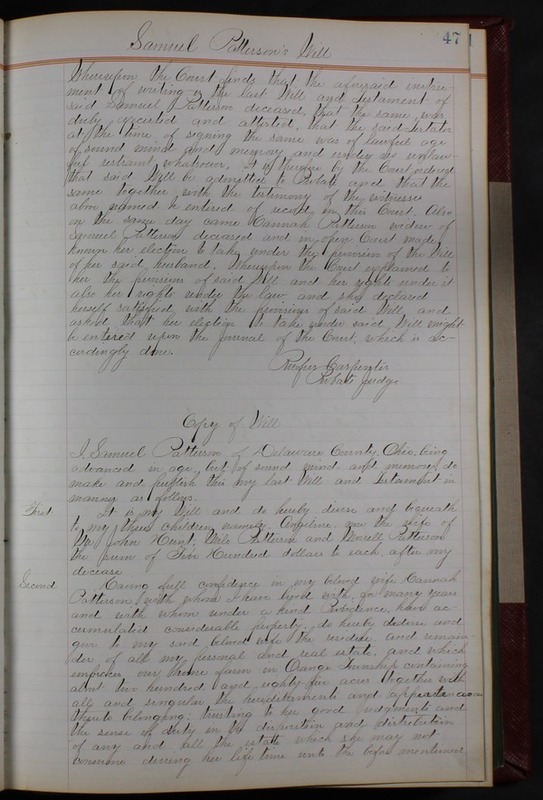 Samuel Patterson's Will
47
Whereupon the Court finds that the aforesaid instru-
ment of writing is the last Will and testament of
said Samuel Patterson deceased, that the same was
duly executed and attested, that the said testator
at the time of signing the same was of lawful age
of sound mind and memory and under no unlaw-
ful restraint whatever. It is therefore by the Court ordered
that said Will be admitted to Probate and that the
same together with the testimony of the witnesses
above named be entered of record in this Court. Also
on the same day came Hannah Patterson widow of
Samuel Patterson deceased and in open Court made
known her election to take under the provision of the Will
of her said husband. Whereupon the Court explained to
her the provisions of said Will and her rights under it
also her rights under the law and she declared
herself satisfied with the provisions of said Will and
asked that her election to take under said Will might
be entered upon the Journal of the Court, which is ac-
cordingly done.
Rufus Carpenter
Probate Judge
Copy of Will
I, Samuel Patterson of Delaware County, Ohio, being
advanced in age but of sound mind and memory do
make and publish this my last Will and testament in
manner as follows.
First It is my Will and do hereby devise and bequeath
to my three children namely, Angeline now the wife of
John Hunt, Milo Patterson and Patterson
the sum of Five Hundred dollars to each after my
decease
Second Having full confidence in my beloved wife Hannah
Patterson, with whom I have lived with so many years
and with whom under a kind Providence have ac-
cumulated considerable property, do hereby devise and
give to my said beloved wife the residue and remain-
der of all my personal and real estate, and which
my home farm in Orange Township containing
about two hundred and eighty five acres together with
all and singular the hereditaments and appurtenances
thereto belonging: trusting to her good judgment and
the sense of duty in the disposition and distribution
of any and all the estate which she may not
consume during her life time unto the before mentioned